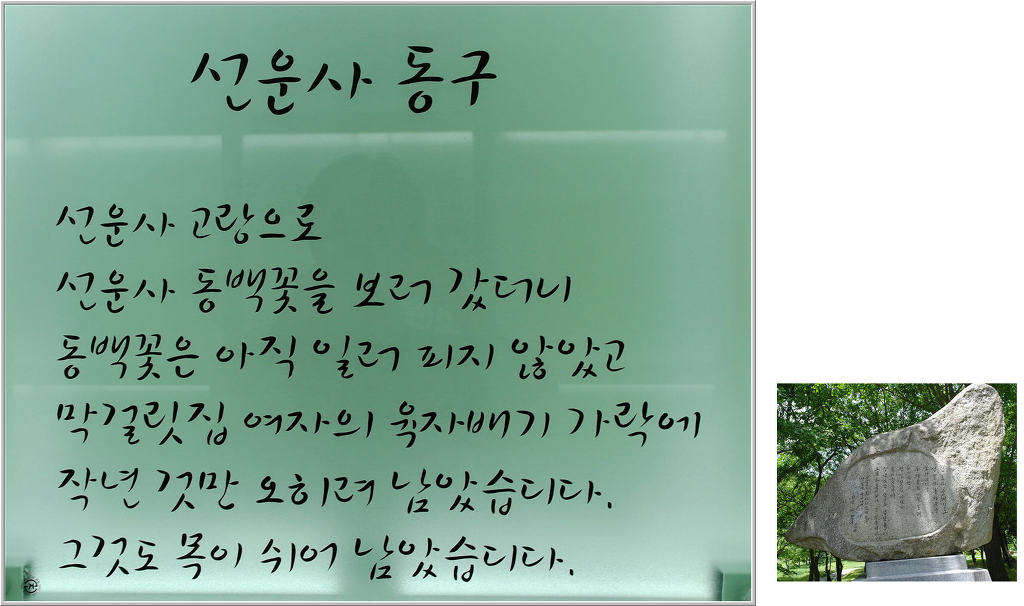 선운사 동구
선운사 고랑으로
선운사 동백꽃을 보러 갔더니
동백꽃은 아직 일러 피지 않았고
막걸릿집 여자의 육자배기 가락에
작년 것만 오히려 남았습디다.
그것도 목이 쉬어 남았습디다.